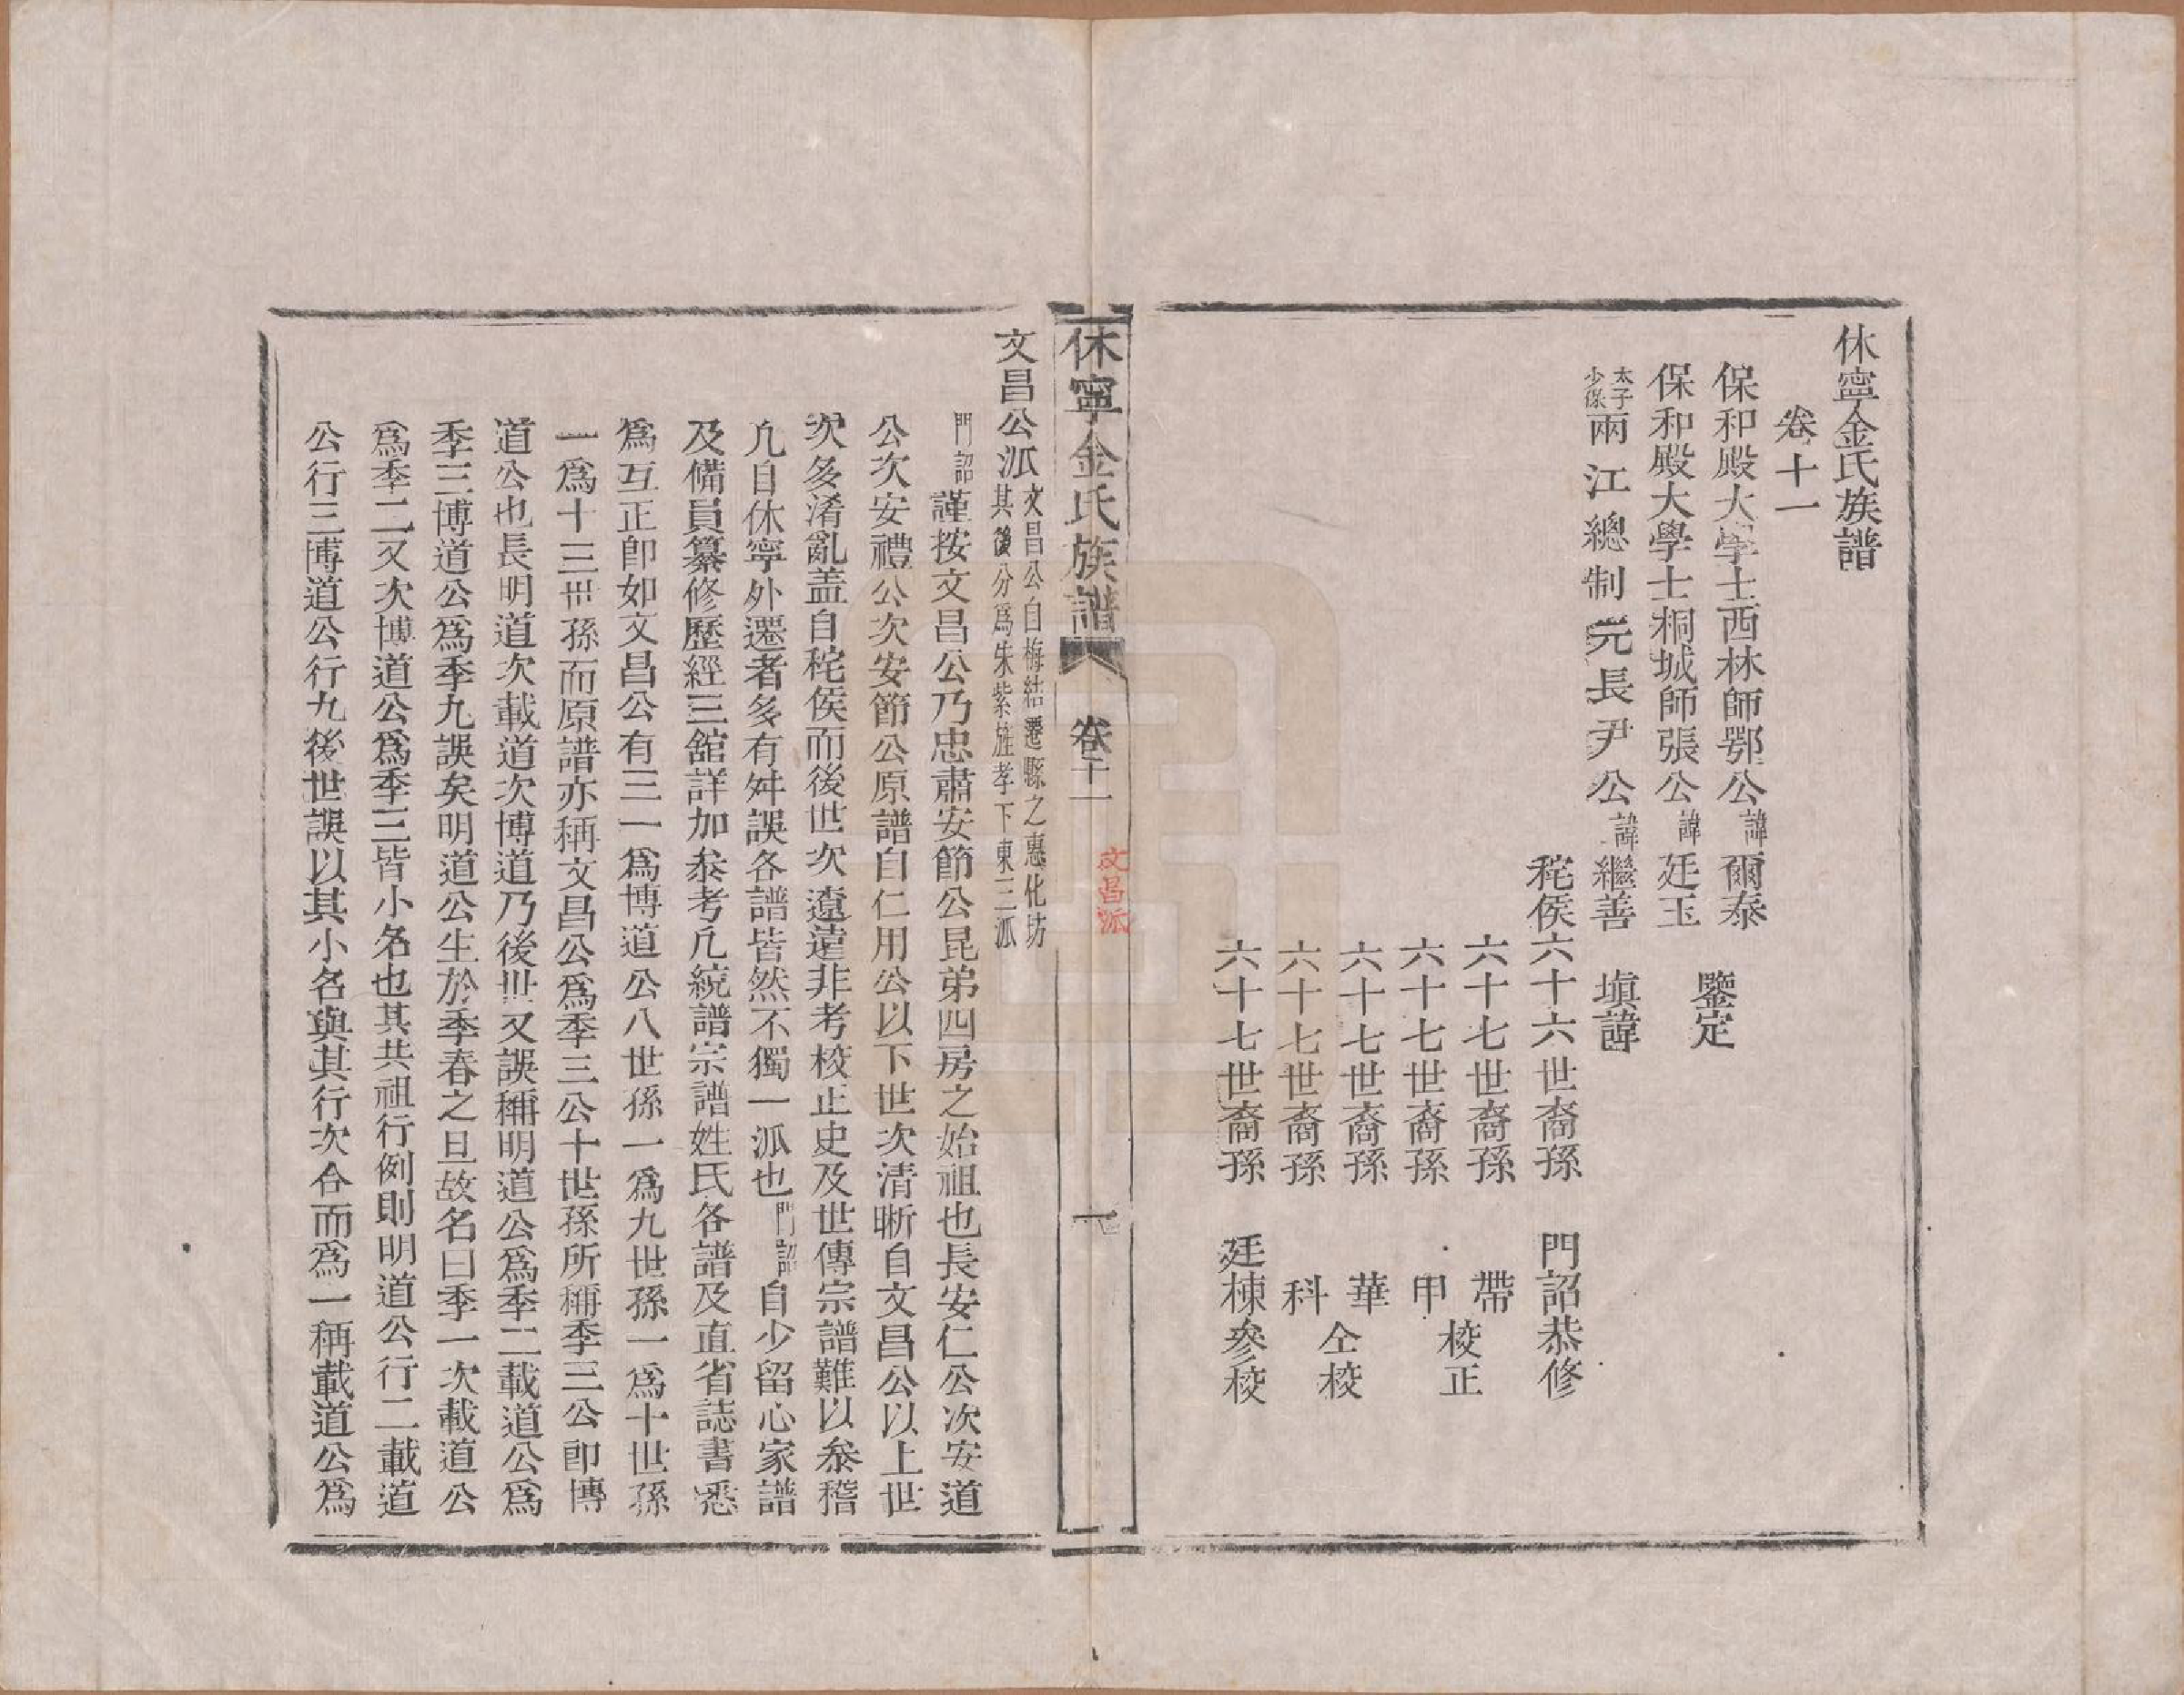 休寧金氏族譜
卷十一
保和殿大學士西林師鄂公諱爾泰
保和殿大學士桐城師張公諱廷玉
鑒定
太子少保兩江總制元長尹公諱繼善 填諱
秺侯六十六世裔孫 門詔恭修
六十七世裔孫 帶
六十七世裔孫 甲
校正
六十七世裔孫 華
六十七世裔孫 科
仝校
六十七世裔孫 廷棟參校
休寧金氏族譜 卷十一 文昌派 一
文昌公派文昌公自梅結遷縣之惠化坊其後分爲朱紫旌孝下東三派
門詔謹按文昌公乃忠肅安節公昆弟四房之始祖也長安仁公次安道
公次安禮公次安節公原譜自仁用公以下世次清晰自文昌公以上世
次多淆亂盖自秺侯而後世次遼遠非考校正史及世傳宗譜難以叅稽
凢自休寧外遷者多有舛誤各譜皆然不獨一派也門詔自少留心家譜
及備員纂修歷經三舘詳加叅考凢統譜宗譜姓氏各譜及直省誌書悉
爲互正卽如文昌公有三一爲博道公八世孫一爲九世孫一爲十世孫
一爲十三世孫而原譜亦稱文昌公爲季三公十世孫所稱季三公卽博
道公也長明道次載道次博道乃後世又誤稱明道公爲季二載道公爲
季三博道公爲季九誤矣明道公生於季春之旦故名曰季一次載道公
爲季二又次博道公爲季三皆小名也其共祖行例則明道公行二載道
公行三博道公行九後世誤以其小名與其行次合而爲一稱載道公爲